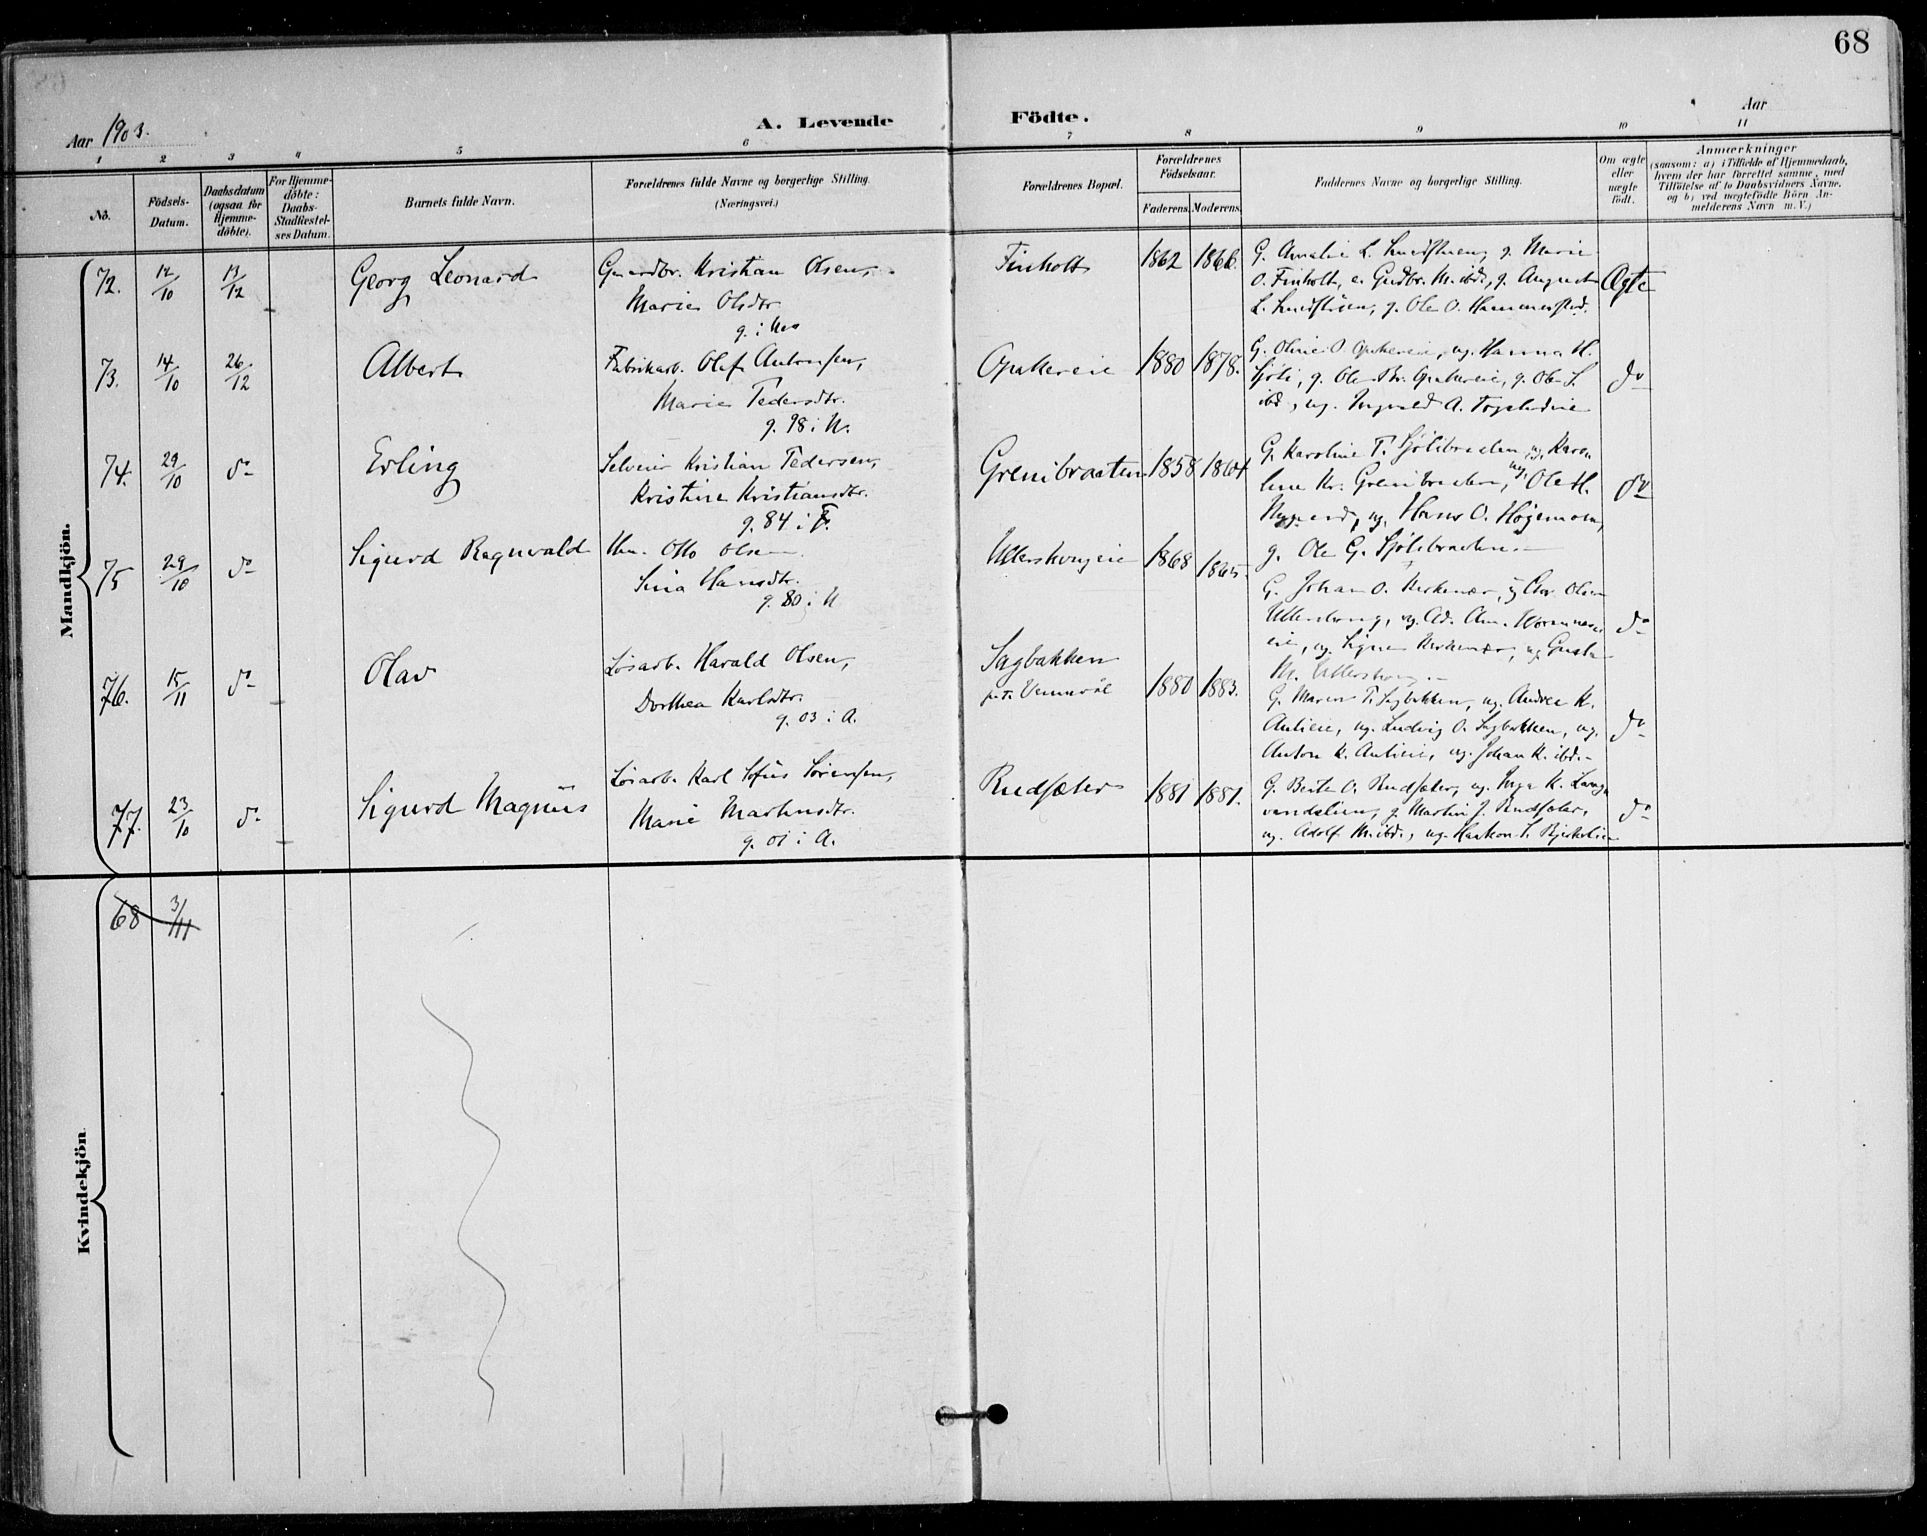 68
Aar 1903.
A. Levende Födte.
Aar
1 2 3 4 5 6 7 8 9 10 11
No.
Födsels-
Datum.
Daabsdatum
(ogsaa for
Hjemme-
döbte).
For Hjemme-
döbte:
Daabs-
Stadfæstel-
ses Datum.
Barnets fulde Navn.
Forældrenes fulde Navne og borgerlige Stilling.
(Næringsvei.)
Forældrenes Bopæl.
Forældrenes
Födselsaar.
Faderens. Moderens.
Faddernes Navne og borgerlige Stilling.
Om ægte
eller
uægte
födt.
Anmærkninger
(saasom: a) i Tilfælde af Hjemmedaab,
hvem der har forrettet samme, med
Tilföielse af to Daabsvidners Navne,
og b) ved uægtefödte Börn An-
melderens Navn m. V.)
Mandkjön.
72. 12/10 13/12 Georg Leonard
Gaardbr. Kristian Olsen,
Marie Olsdtr.
g. i Nes
Finholt 1862 1866.
G. Amalie L. g. Marie
O. Finholt, e. Gudbr. M. ibd., g. August
L. g. Ole O.
Ægte
73. 14/10 26/12 Albert
Fabrikarb. Olaf Antonsen,
Marie Pedersdtr.
g. 98 i N.
Opakereie 1880 1878.
G. Oline O. Opakereie, ug. Hanna H.
Sjøli, g. Ole Opakereie, g. Ole S.
ibd., ug. Ingvald A.
do
74. 29/10 do Erling
Selveier Kristian Pedersen,
Kristine Kristiansdtr.
g. 84 i F.
Grenibraaten 1858 1864.
G. Karoline T. Sjölibraaten, ug. Karo-
line Kr. Grenibraaten, ug. Ole H.
Nygaard, ug. Hans O. Högemoen,
g. Ole G. Sjölibraaten.
do
75 29/10 do Sigurd Ragnvald
Hm. Otto Olsen
Sina Hansdtr.
g. 80 i N
Ullershovseie 1868 1865.
G. Johan O. Kirkenær, ug. Olsen
Ullershov, ug. Ad.
eie, ug. Signe Kirkenær, ug. Gusta
M. Ullershov.
do
76. 15/11 do Olav
Løsarb. Harald Olsen,
Dorthea Karlsdtr.
g. 03 i A.
Sagbakken
1880 1883.
G. Maren T. Sagbakken, ug. Andrea K.
Antieie, ug. Ludvig O. Sagbakken, ug.
Anton K. Antieie, ug. Johan K. ibd.
do
77. 23/10 do Sigurd Magnus
Løsarb. Karl Sofus Sörensen,
Marie Martinsdtr.
g. 01 i A.
Rudsæter 1881 1881.
G. Berte O. Rudsæter, ug. Inga K.
g. Martin J. Rudsæter,
ug. Adolf M. ibd., ug. Haakon
do
Kvindekjön
68 3/11